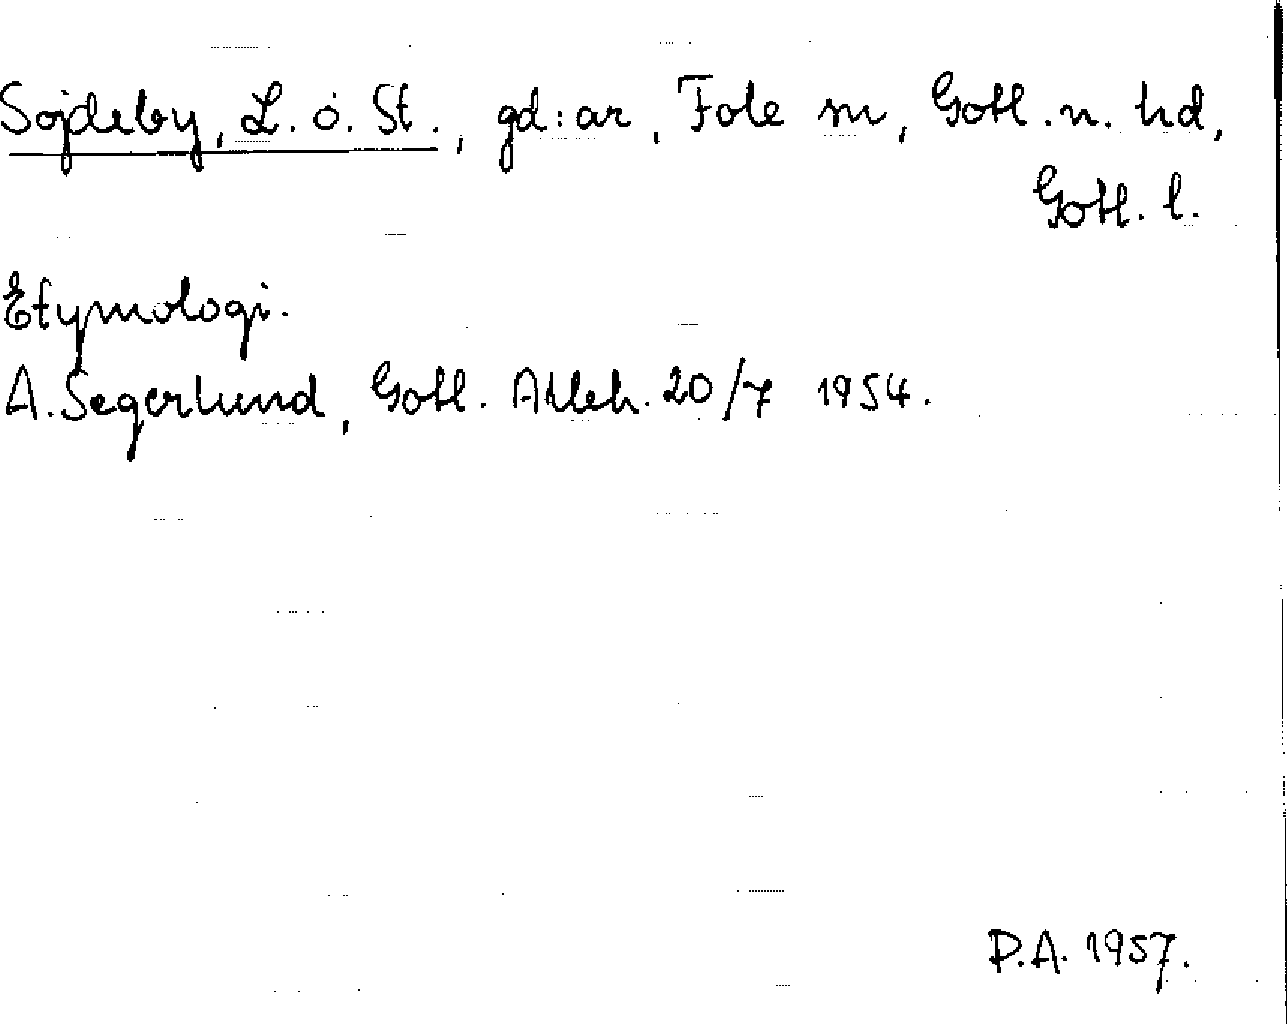 Sojdeby, L. o. St., gd:ar, Fole sn, Gotl. n. hd,
Gotl. l.
Etymologi.
A. Segerlund, Gotl. Alleh. 20/7 1954.
P.A. 1957.